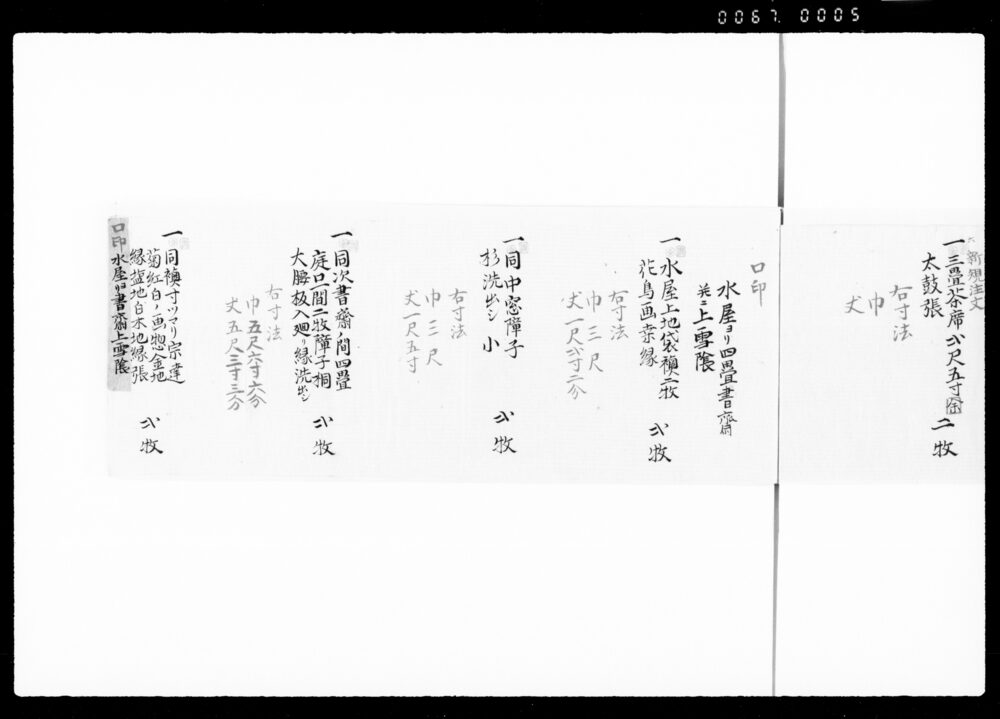 0067. 0005
新規注文
一 三畳台席弐尺五寸 二枚
太鼓張
右寸法
巾
丈
口印
水屋ヨリ四畳書斎
并ニ上雪隠
一 水屋上地袋襖二枚 弐枚
花鳥画桑縁
右寸法
巾三尺
丈一尺弐寸二分
一 同中窓障子 弐枚
杉洗出シ 小
右寸法
巾三尺
丈一尺五寸
一 同次書斎ノ間四畳
庭口一間二枚障子桐
大腰板入廻リ縁洗出シ 弐枚
右寸法
巾五尺六寸六分
丈五尺三寸三分
一 同襖寸ツマリ宗達
菊紅白ノ画惣金地
縁塩地白木地縁張 弐枚
口印水屋ヨリ書斎上雪隠